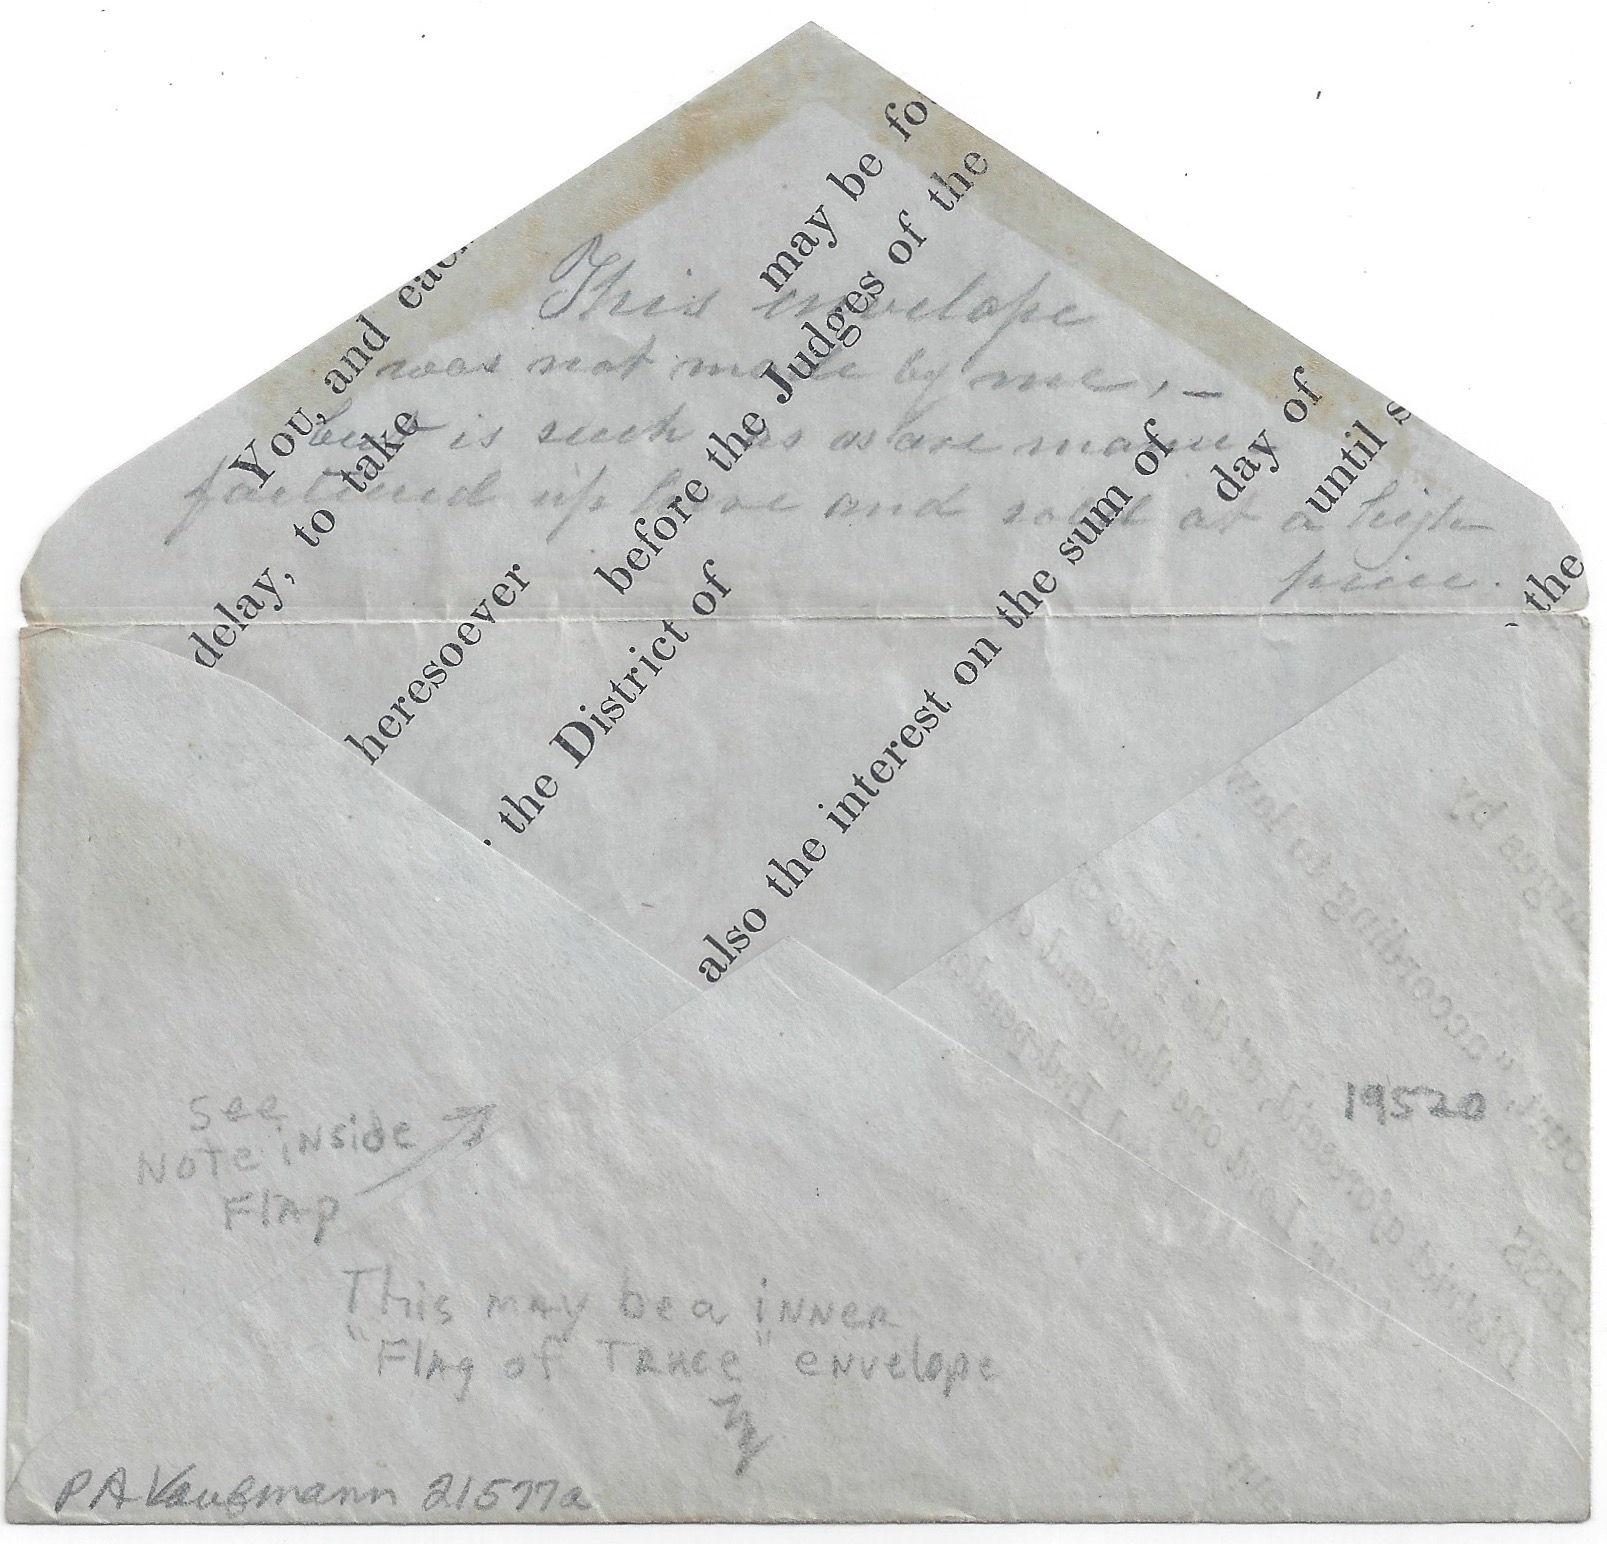 You, and each
may be fo
delay, to take
before the Judges of the
heresoever
the District of
also the interest on the sum of
day of
until s
the
This envelope
was not made by me, –
but is such as as are manu
factured up here and sold at a high
price.
See
Note inside
Flap
This may be a inner
"Flag of Truce" envelope
19520
P A Kaufmann 21577a
ges by
according to law
ourt,"
aforesaid, at the place
Lord one thousand
District
Indepen
ESS